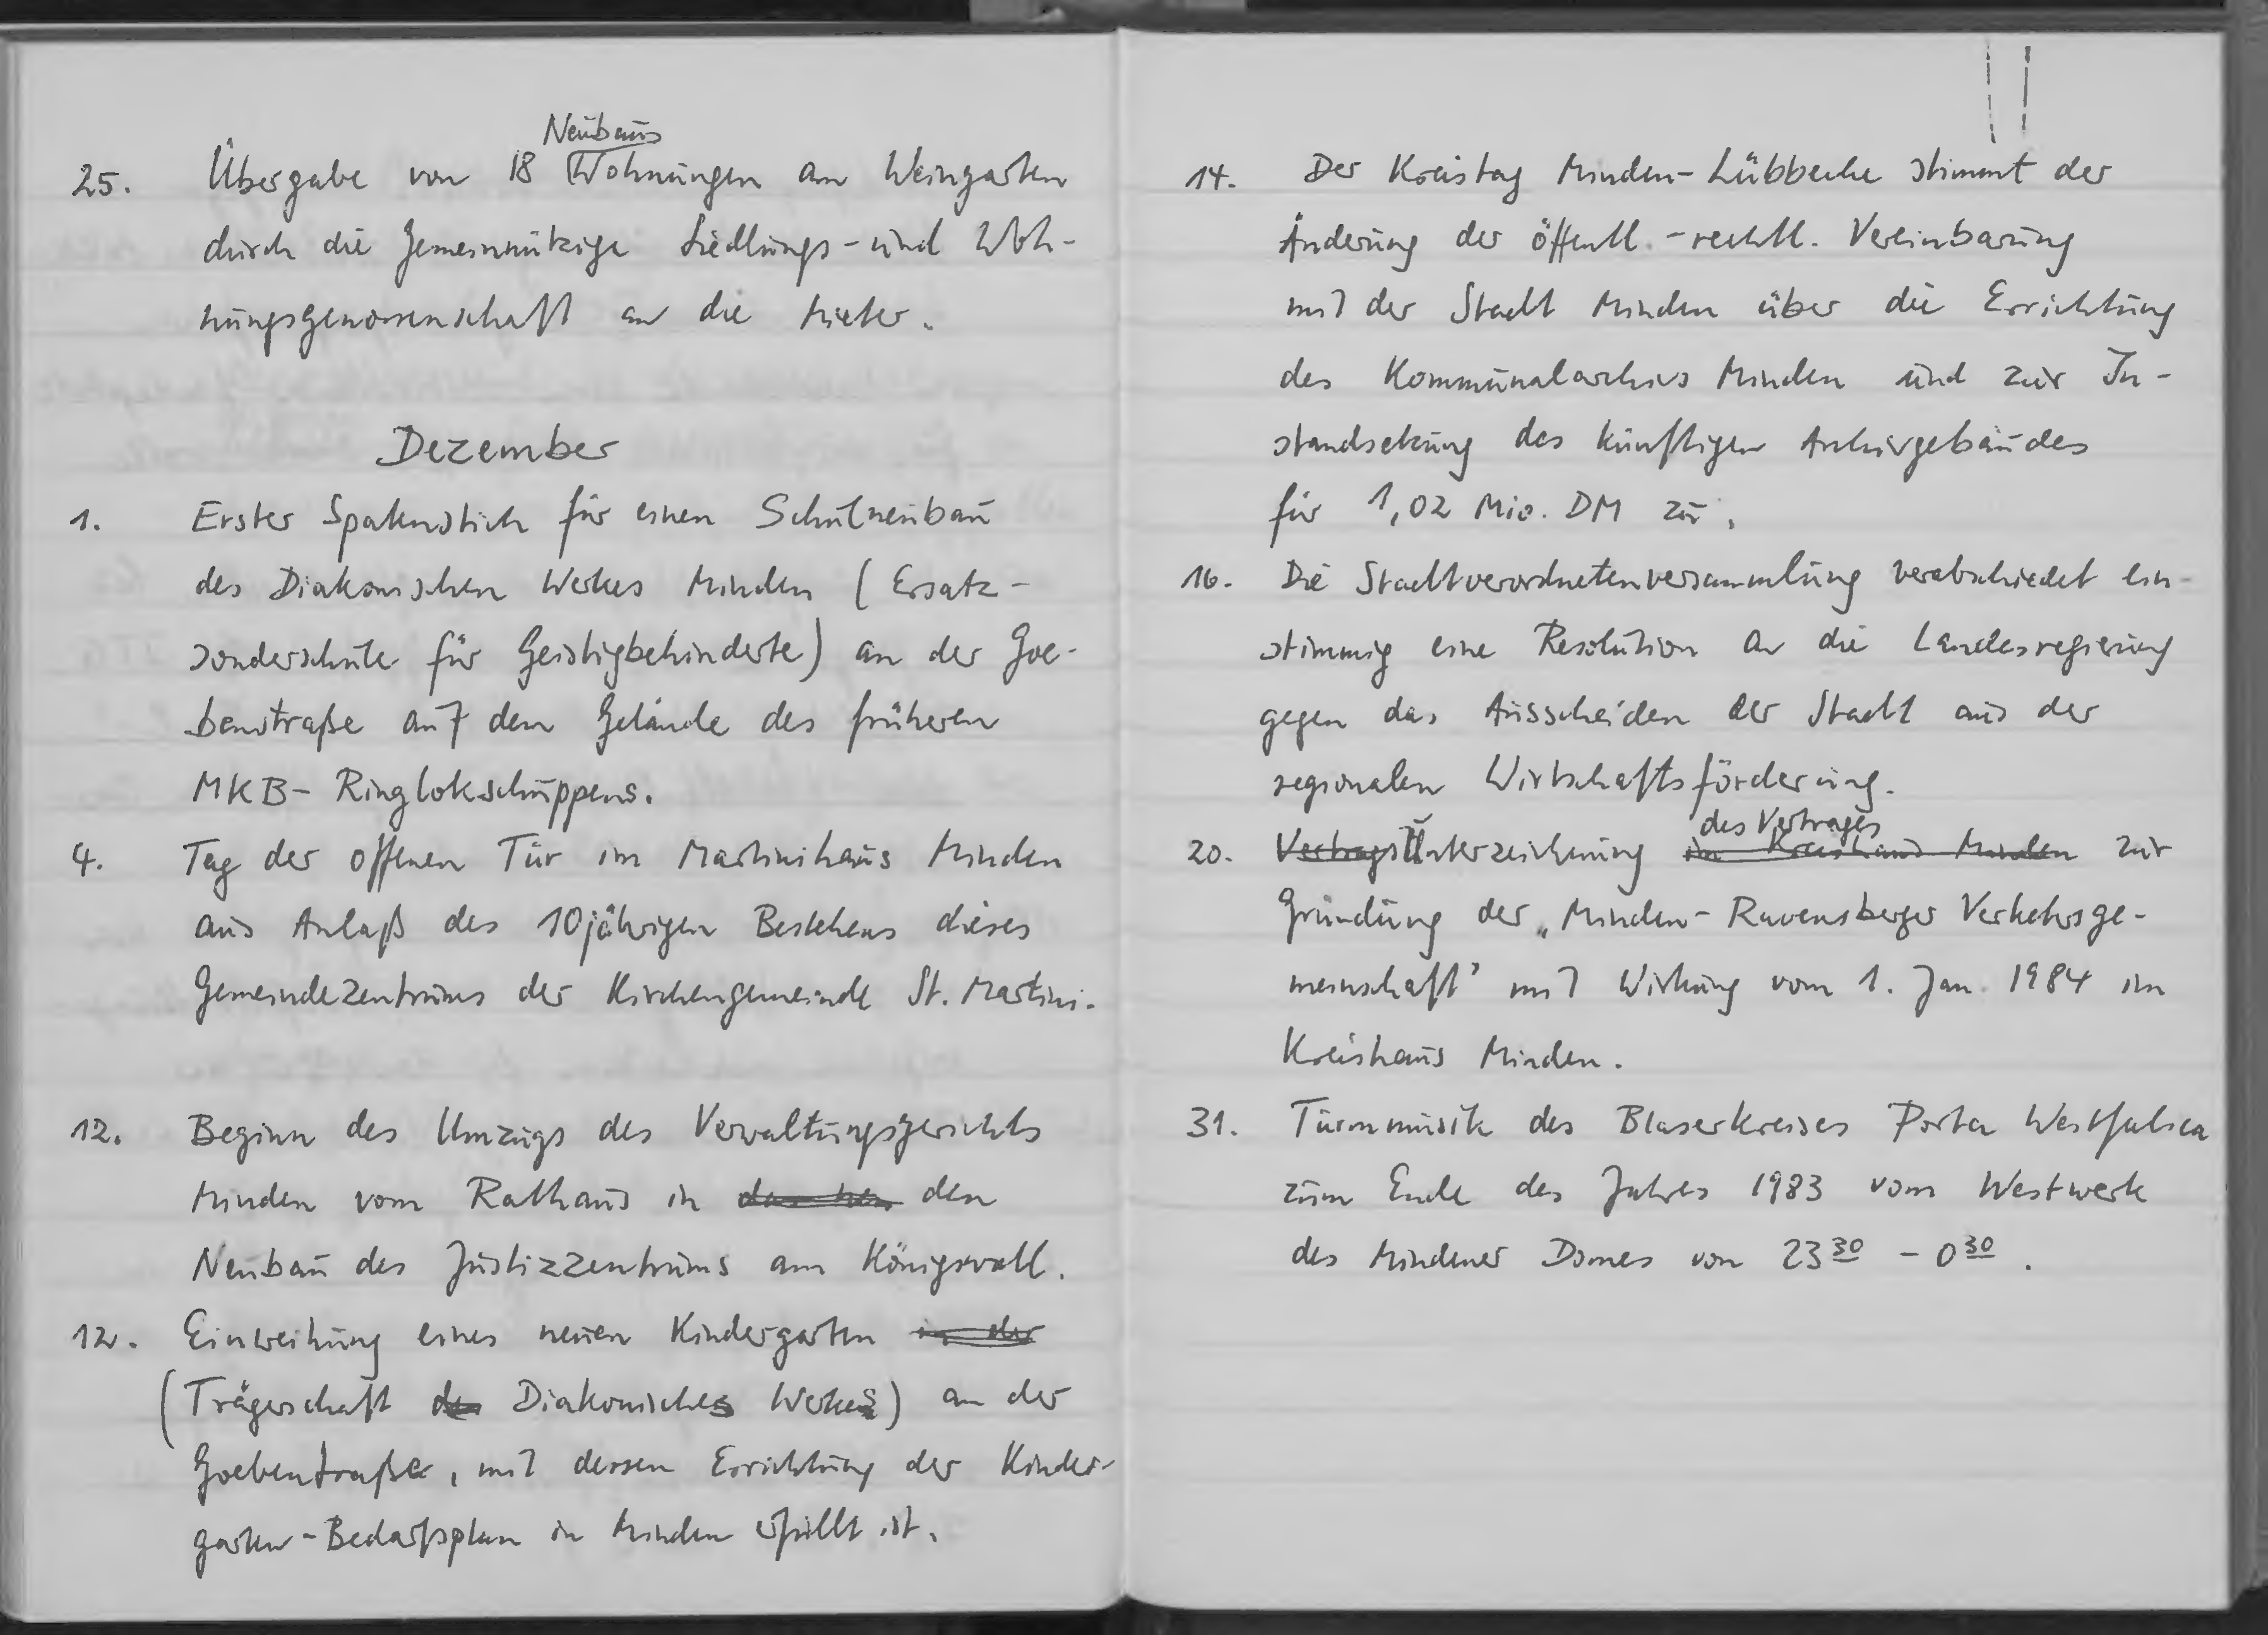 25. Übergabe von 18 Neubauwohnungen am Weingarten
durch die Gemeinnützige Siedlungs- und Woh-
nungsgenossenschaft an die Mieter.
Dezember
1. Erster Spatenstich für einen Schulneubau
des Diakonischen Werkes Minden (Ersatz-
sonderschule für Geistigbehinderte) an der Goe-
benstraße auf dem Gelände des früheren
MKB-Ringlokschuppens.
4. Tag der offenen Tür im Martinihaus Minden
aus Anlaß des 10jährigen Bestehens dieses
Gemeindezentrums der Kirchengemeinde St. Martini.
12. Beginn des Umzugs des Verwaltungsgerichts
Minden vom Rathaus in den
Neubau des Justizzentrums am Königswall.
12. Einweihung eines neuen Kindergarten in der
(Trägerschaft Diakonisches Werkes) an der
Goebenstraße, mit dessen Errichtung der Kinder-
garten-Bedarfsplan in Minden erfüllt ist.
14. Der Kreistag Minden-Lübbecke stimmt der
Änderung der öffentl.-rechtl. Vereinbarung
mit der Stadt Minden über die Errichtung
des Kommunalarchivs Minden und zur In-
standsetzung des künftigen Archivgebäudes
für 1,02 Mio. DM zu.
16. Die Stadtverordnetenversammlung verabschiedet ein-
stimmig eine Resolution an die Landesregierung
gegen das Ausscheiden der Stadt aus der
regionalen Wirtschaftsförderung.
des Vertrages
20. Vertrags Unterzeichnung im Kreishaus Minden zur
Gründung der „Minden-Ravensberger Verkehrsge-
meinschaft" mit Wirkung vom 1. Jan. 1984 im
Kreishaus Minden.
31. Turmmusik des Bläserkreises Porta Westfalica
zum Ende des Jahres 1983 vom Westwerk
des Mindener Domes von 23 30 - 0 30.